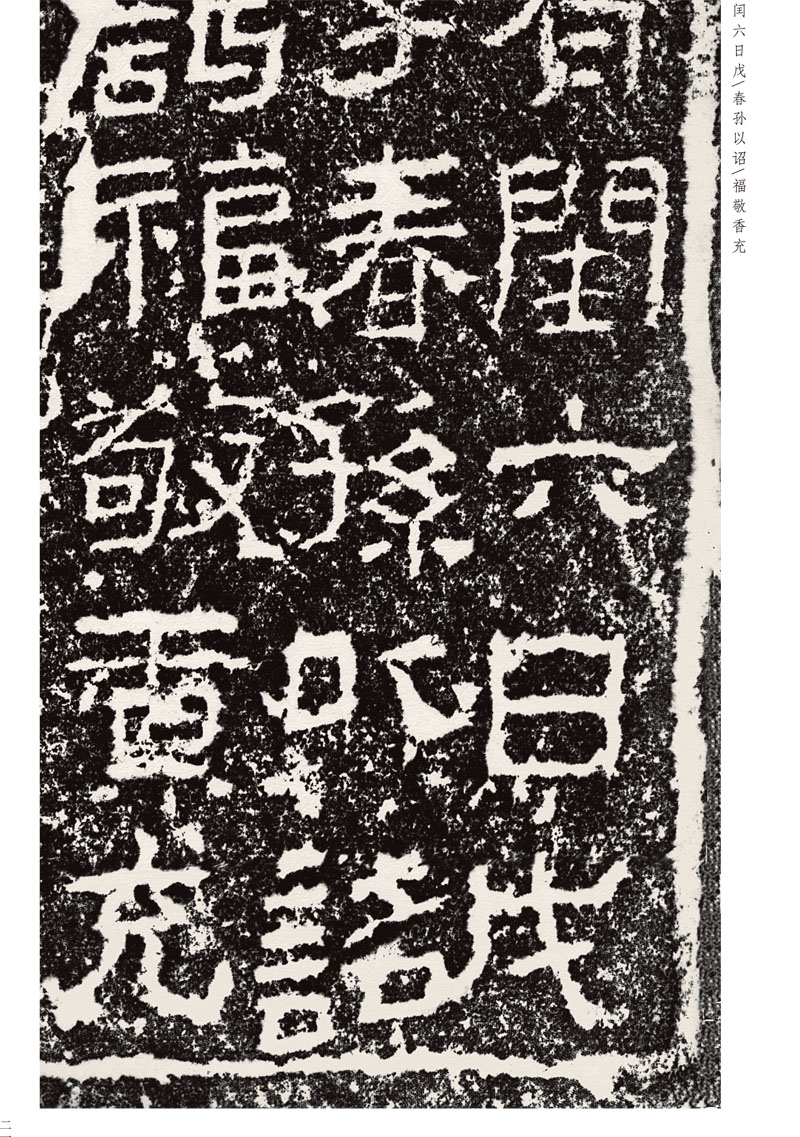 闰六日戊\春孙以诏\福敬香充
閏六日戊
春孫以詔
福敬香充